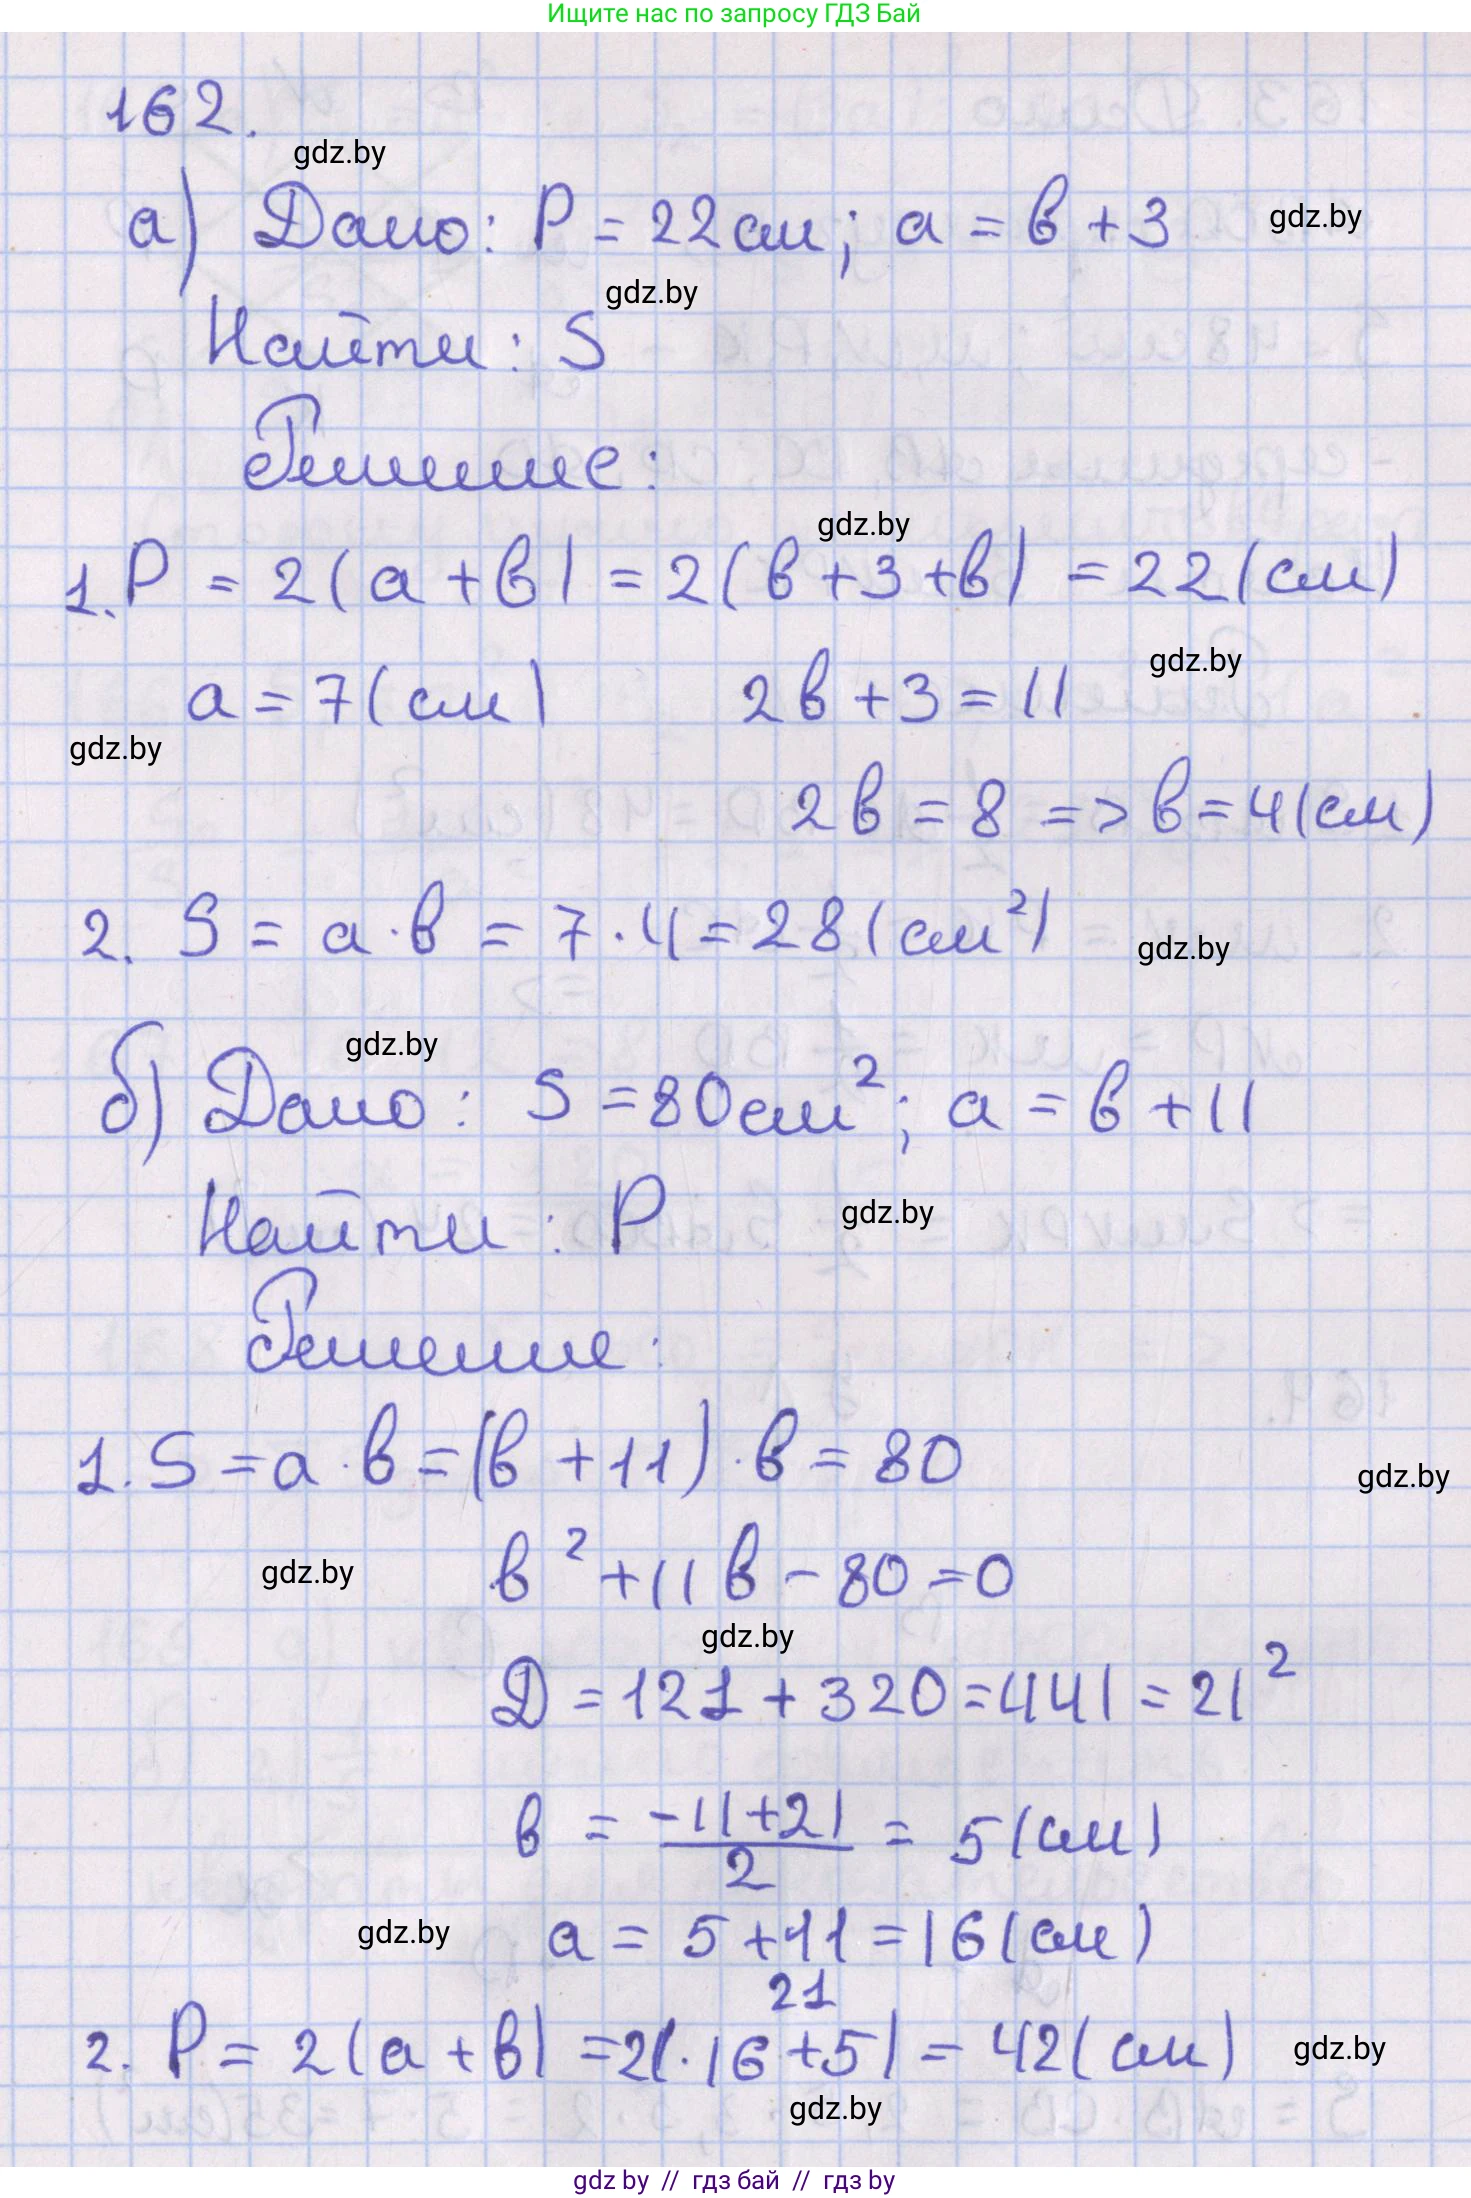 Ищите нас по запросу ГДЗ Бай
162.
gdz.by
а) Дано: P = 22 см; a = b + 3
gdz.by
gdz.by
Найти: S
Решение:
gdz.by
1. P = 2(a + b) = 2(b + 3 + b) = 22 (см)
gdz.by
a = 7 (см) 2b + 3 = 11
gdz.by
2b = 8 => b = 4 (см)
2. S = a · b = 7 · 4 = 28 (см²)
gdz.by
gdz.by
б) Дано: S = 80 см²; a = b + 11
Найти: P
gdz.by
Решение:
1. S = a · b = (b + 11) · b = 80
gdz.by
gdz.by
b² + 11b - 80 = 0
gdz.by
D = 121 + 320 = 441 = 21²
b = (-11 + 21)/2 = 5 (см)
gdz.by
a = 5 + 11 = 16 (см)
21
2. P = 2(a + b) = 2(·16 + 5) = 42 (см)
gdz.by
gdz.by
gdz by // гдз бай // гдз by